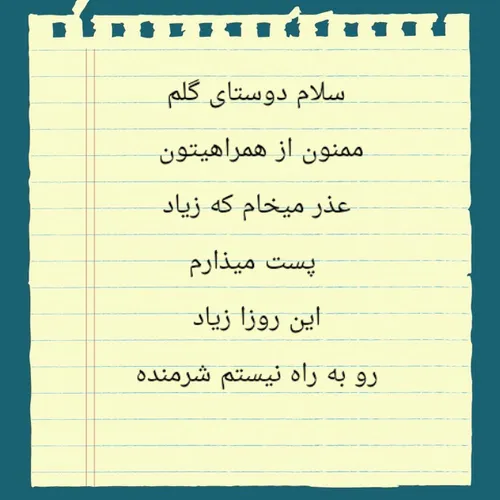 سلام دوستای گلم
ممنون از همراهیتون
عذر میخام که زیاد
پست میذارم
این روزا زیاد
رو به راه نیستم شرمنده